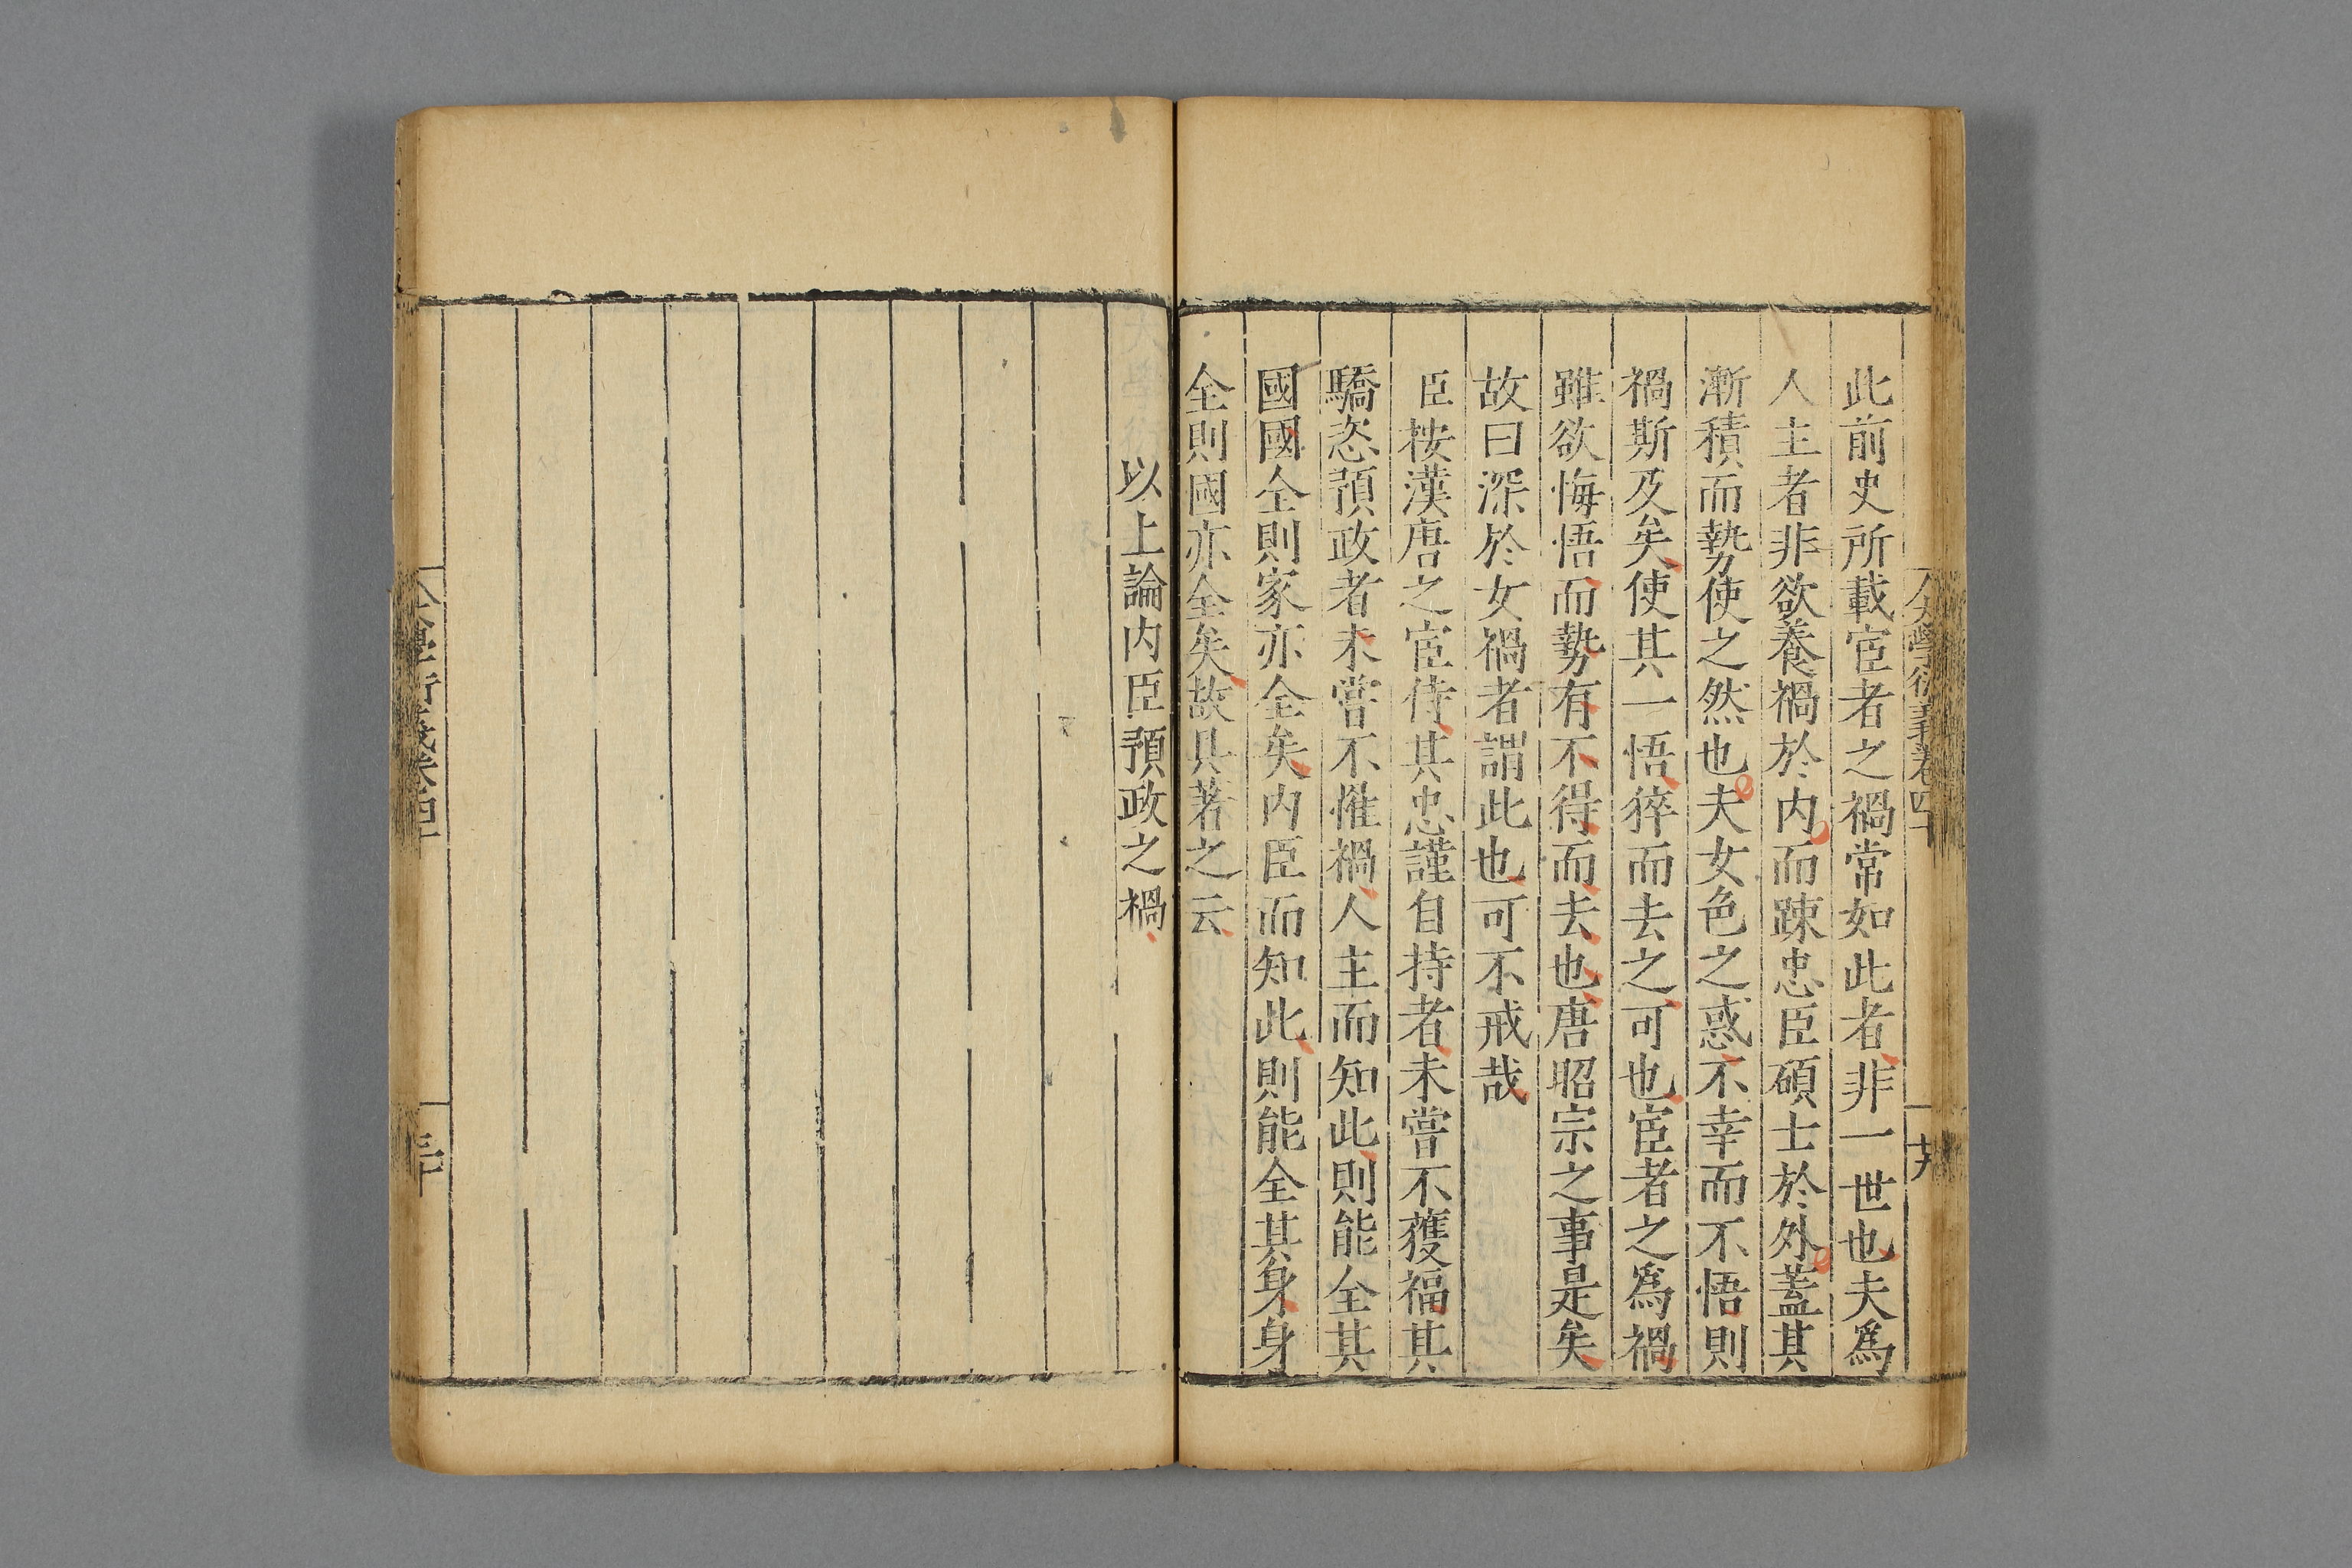 大學衍義卷四十
廿九
此前史所載宦者之禍常如此者非一世也夫爲
人主者非欲養禍於内而踈忠臣碩士於外蓋其
漸積而勢使之然也夫女色之惑不幸而不悟則
禍斯及矣使其一悟猝而去之可也宦者之爲禍
雖欲悔悟而勢有不得而去也唐昭宗之事是矣
故曰深於女禍者謂此也可不戒哉
臣按漢唐之宦侍其忠謹自持者未嘗不獲福其
驕恣預政者未嘗不惟禍人主而知此則能全其
國國全則家亦全矣内臣而知此則能全其身身
全則國亦全矣故具著之云
以上論内臣預政之禍